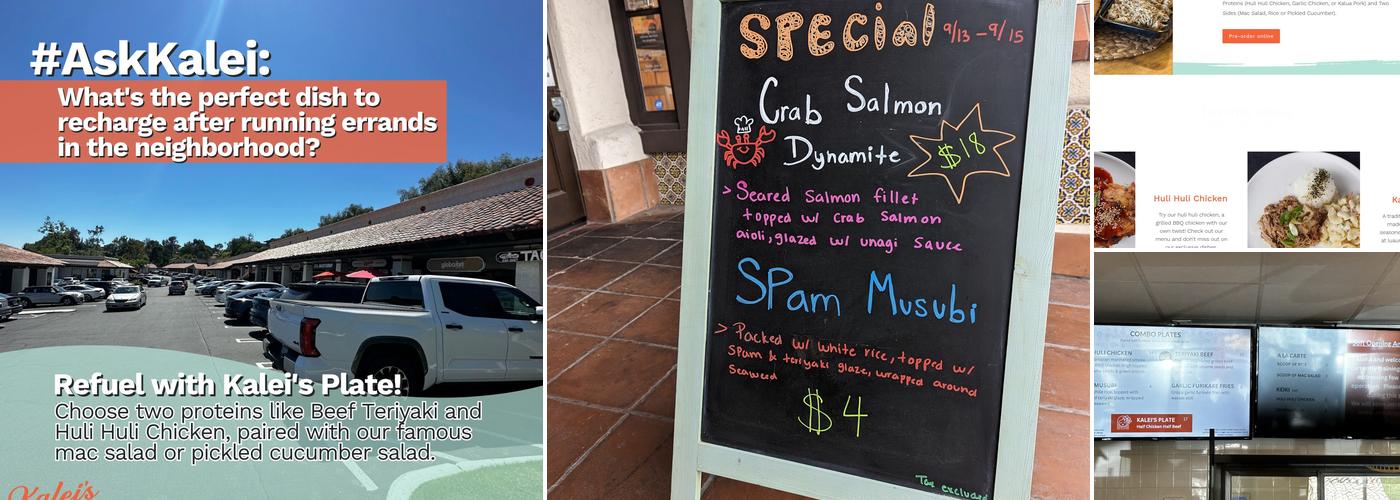 #AskKalei:
What's the perfect dish to
recharge after running errands
in the neighborhood?
Refuel with Kalei's Plate!
Choose two proteins like Beef Teriyaki and
Huli Huli Chicken, paired with our famous
mac salad or pickled cucumber salad.
Kalei's
SPECIAL 9/13 - 9/15
Crab Salmon
Dynamite
$18
> Seared Salmon fillet
topped w/ Crab Salmon
aioli, glazed w/ unagi sauce
SPam Musubi
> Packed w/ white rice, topped w/
SPam & teriyaki glaze, wrapped around
Seaweed
$4
Tax excluded
Proteins (Huli Huli Chicken, Garlic Chicken, or Kalua Pork) and Two
Sides (Mac Salad, Rice or Pickled Cucumber).
Pre-order online
Huli Huli Chicken
Try our huli huli chicken, a
grilled BBQ chicken with our
own twist! Check out our
menu and don't miss out on
our exclusive dishes
COMBO PLATES
HULI CHICKEN
TERIYAKI BEEF
MUSUBI
GARLIC FURIKAKE FRIES
KALEI'S PLATE 17
Half Chicken Half Beef
A LA CARTE
SCOOP OF MAC SALAD
Soft Opening